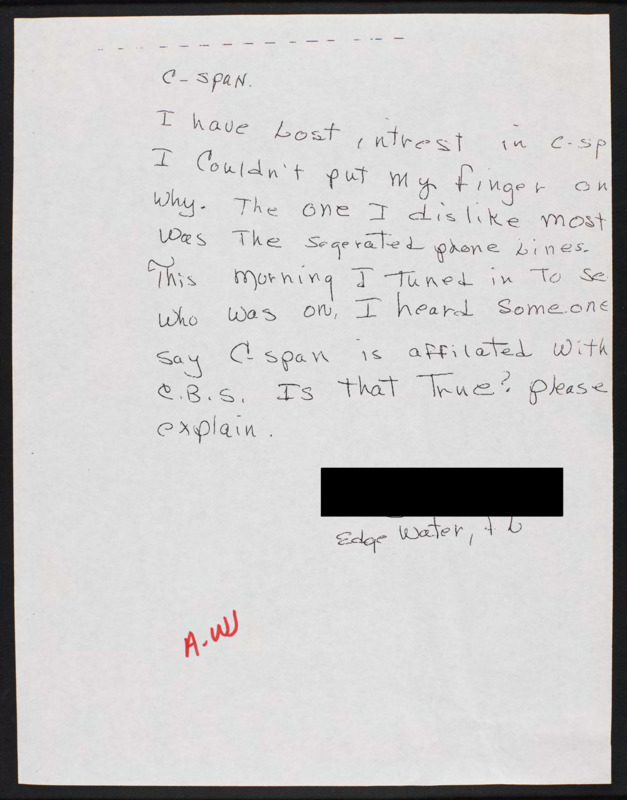 C-span.
I have Lost intrest in C-sp
I Couldn't put my finger on
why. The one I dislike most
was The segerated phone Lines.
This morning I Tuned in To se
who was on, I heard Someone
say C-span is affilated with
C.B.S. Is that True? please
explain.
Edge Water, FL
A.W